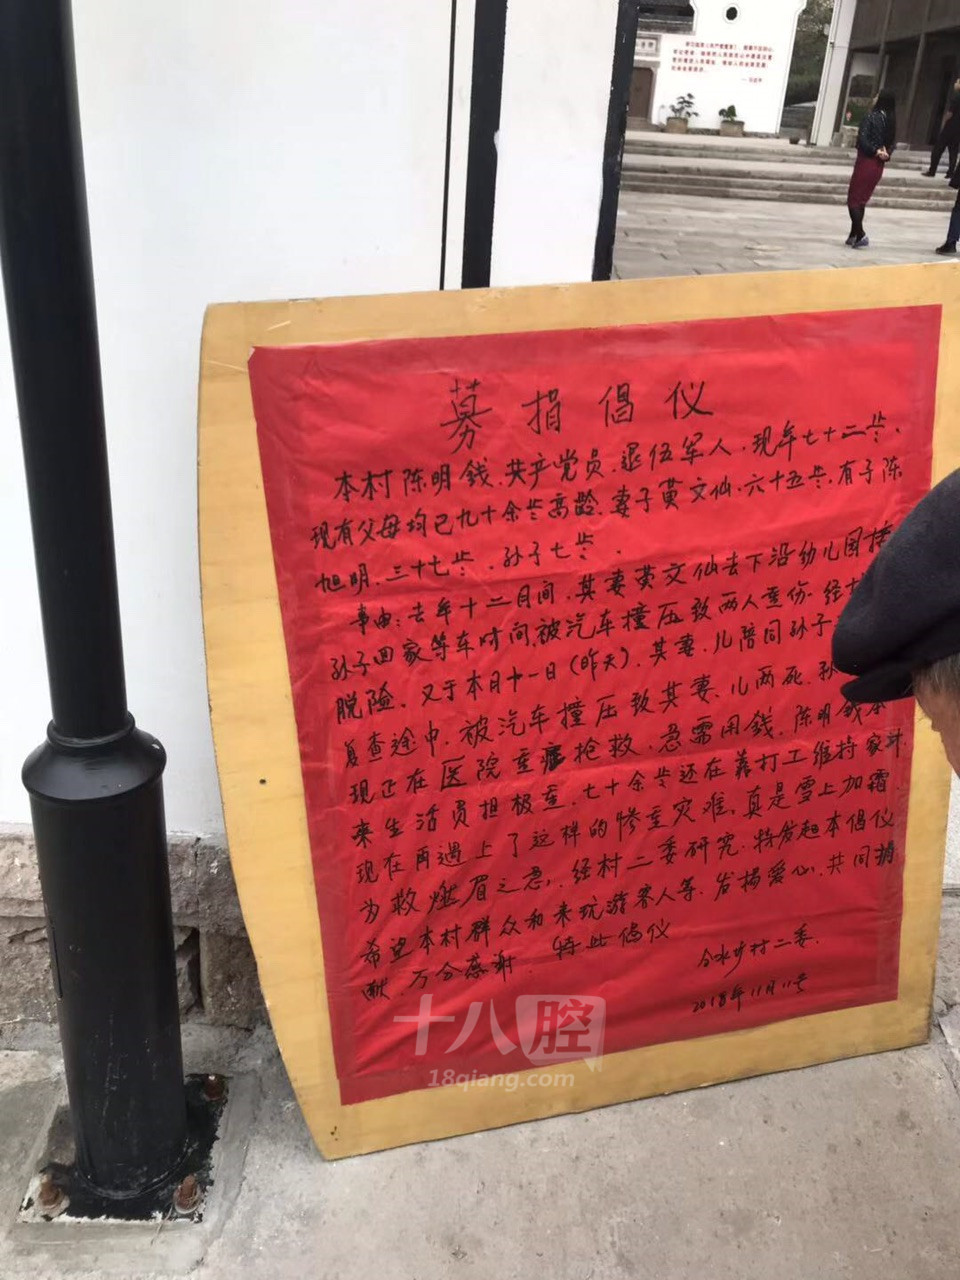 募捐倡仪
本村陈明钱、共产党员、退伍军人、现年七十二岁、
现有父母均已九十余岁高龄、妻子黄文仙、六十五岁、有子陈
旭明、三十七岁、孙子七岁、
事由：去年十二月间、其妻黄文仙去下沿幼儿园接
孙子回家等车时间、被汽车撞压致两人重伤、经
脱险、又于本月十一日（昨天）、其妻、儿陪同孙子
复查途中、被汽车撞压致其妻、儿两死、孙
现正在医院重症抢救、急需用钱、陈明钱本
来生活员担极重、七十余岁还在靠打工维持家计
现在再遇上了这样的惨重灾难、真是雪上加霜、
为救燃眉之急、经村二委研究、特发起本倡仪
希望本村群众和来玩游客人等、发扬爱心、共同捐
献、万分感谢、特此倡仪
村二委、
2018年11月11号
十八腔
18qiang.com